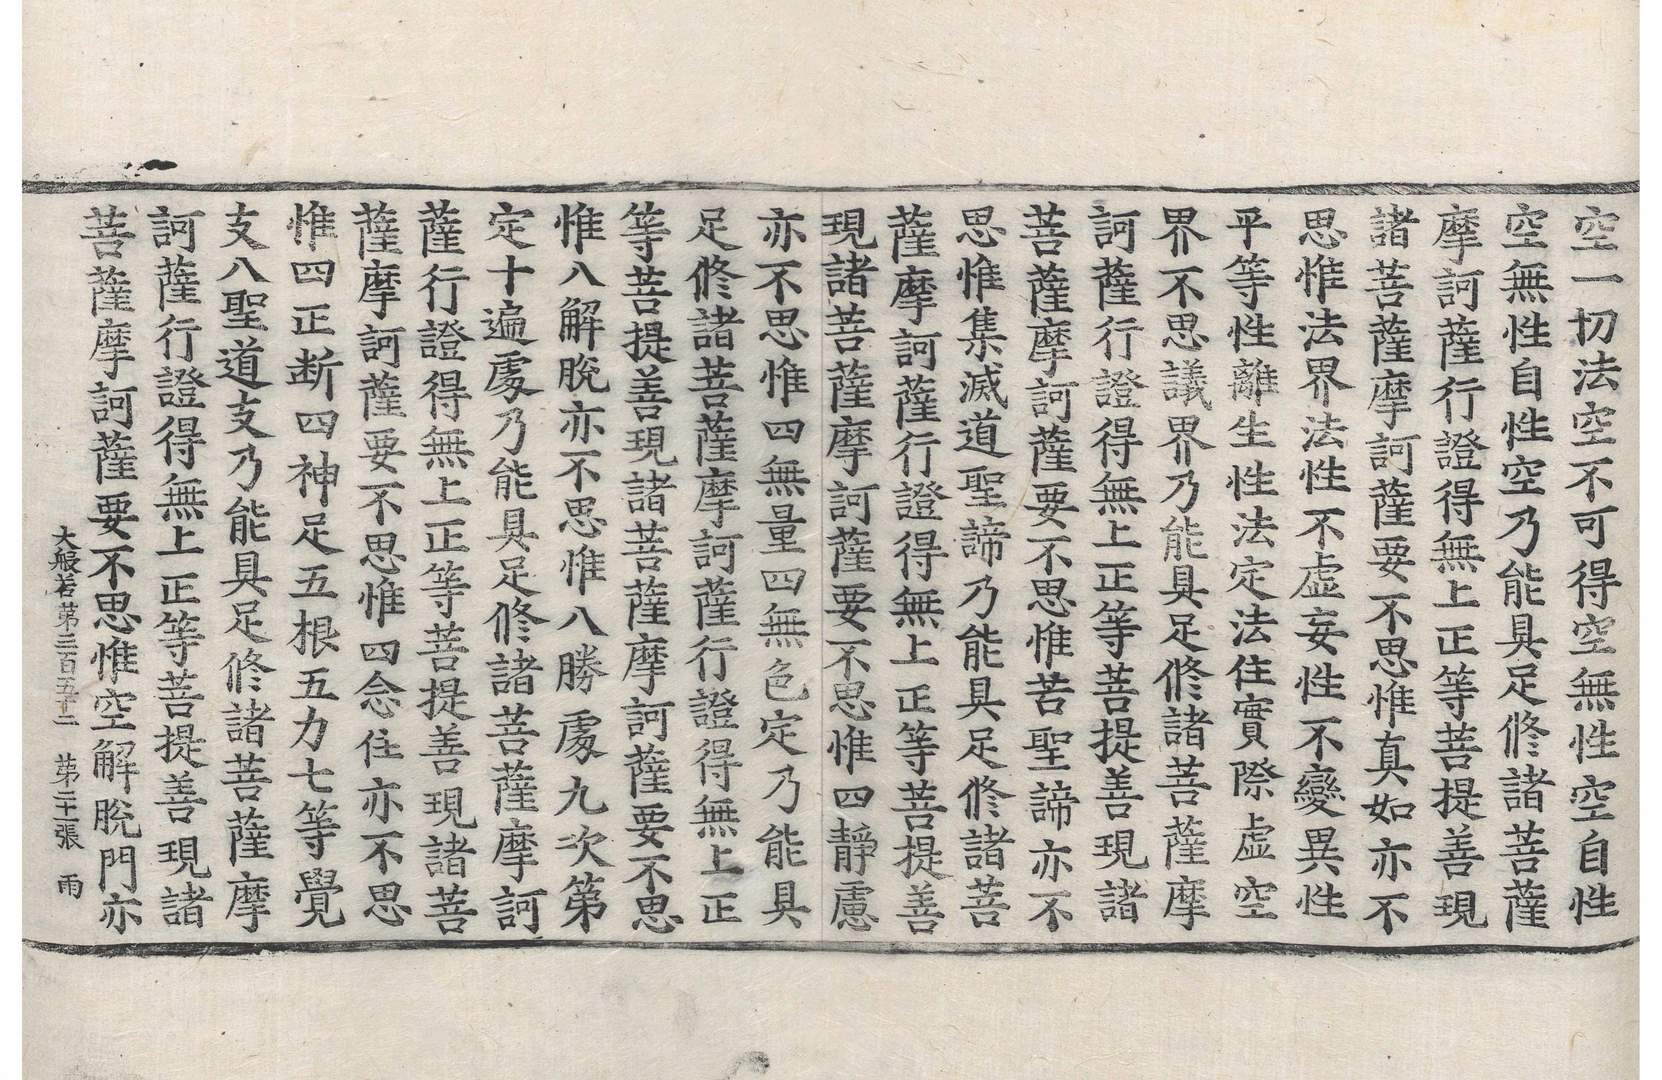 空一切法空不可得空無性空自性
空無性自性空乃能具足修諸菩薩
摩訶薩行證得無上正等菩提善現
諸菩薩摩訶薩要不思惟真如亦不
思惟法界法性不虛妄性不變異性
平等性離生性法定法住實際虛空
界不思議界乃能具足修諸菩薩摩
訶薩行證得無上正等菩提善現諸
菩薩摩訶薩要不思惟苦聖諦亦不
思惟集滅道聖諦乃能具足修諸菩
薩摩訶薩行證得無上正等菩提善
現諸菩薩摩訶薩要不思惟四靜慮
亦不思惟四無量四無色定乃能具
足修諸菩薩摩訶薩行證得無上正
等菩提善現諸菩薩摩訶薩要不思
惟八解脫亦不思惟八勝處九次第
定十遍處乃能具足修諸菩薩摩訶
薩行證得無上正等菩提善現諸菩
薩摩訶薩要不思惟四念住亦不思
惟四正斷四神足五根五力七等覺
支八聖道支乃能具足修諸菩薩摩
訶薩行證得無上正等菩提善現諸
菩薩摩訶薩要不思惟空解脫門亦
大般若第三百五十二 第二十張 雨